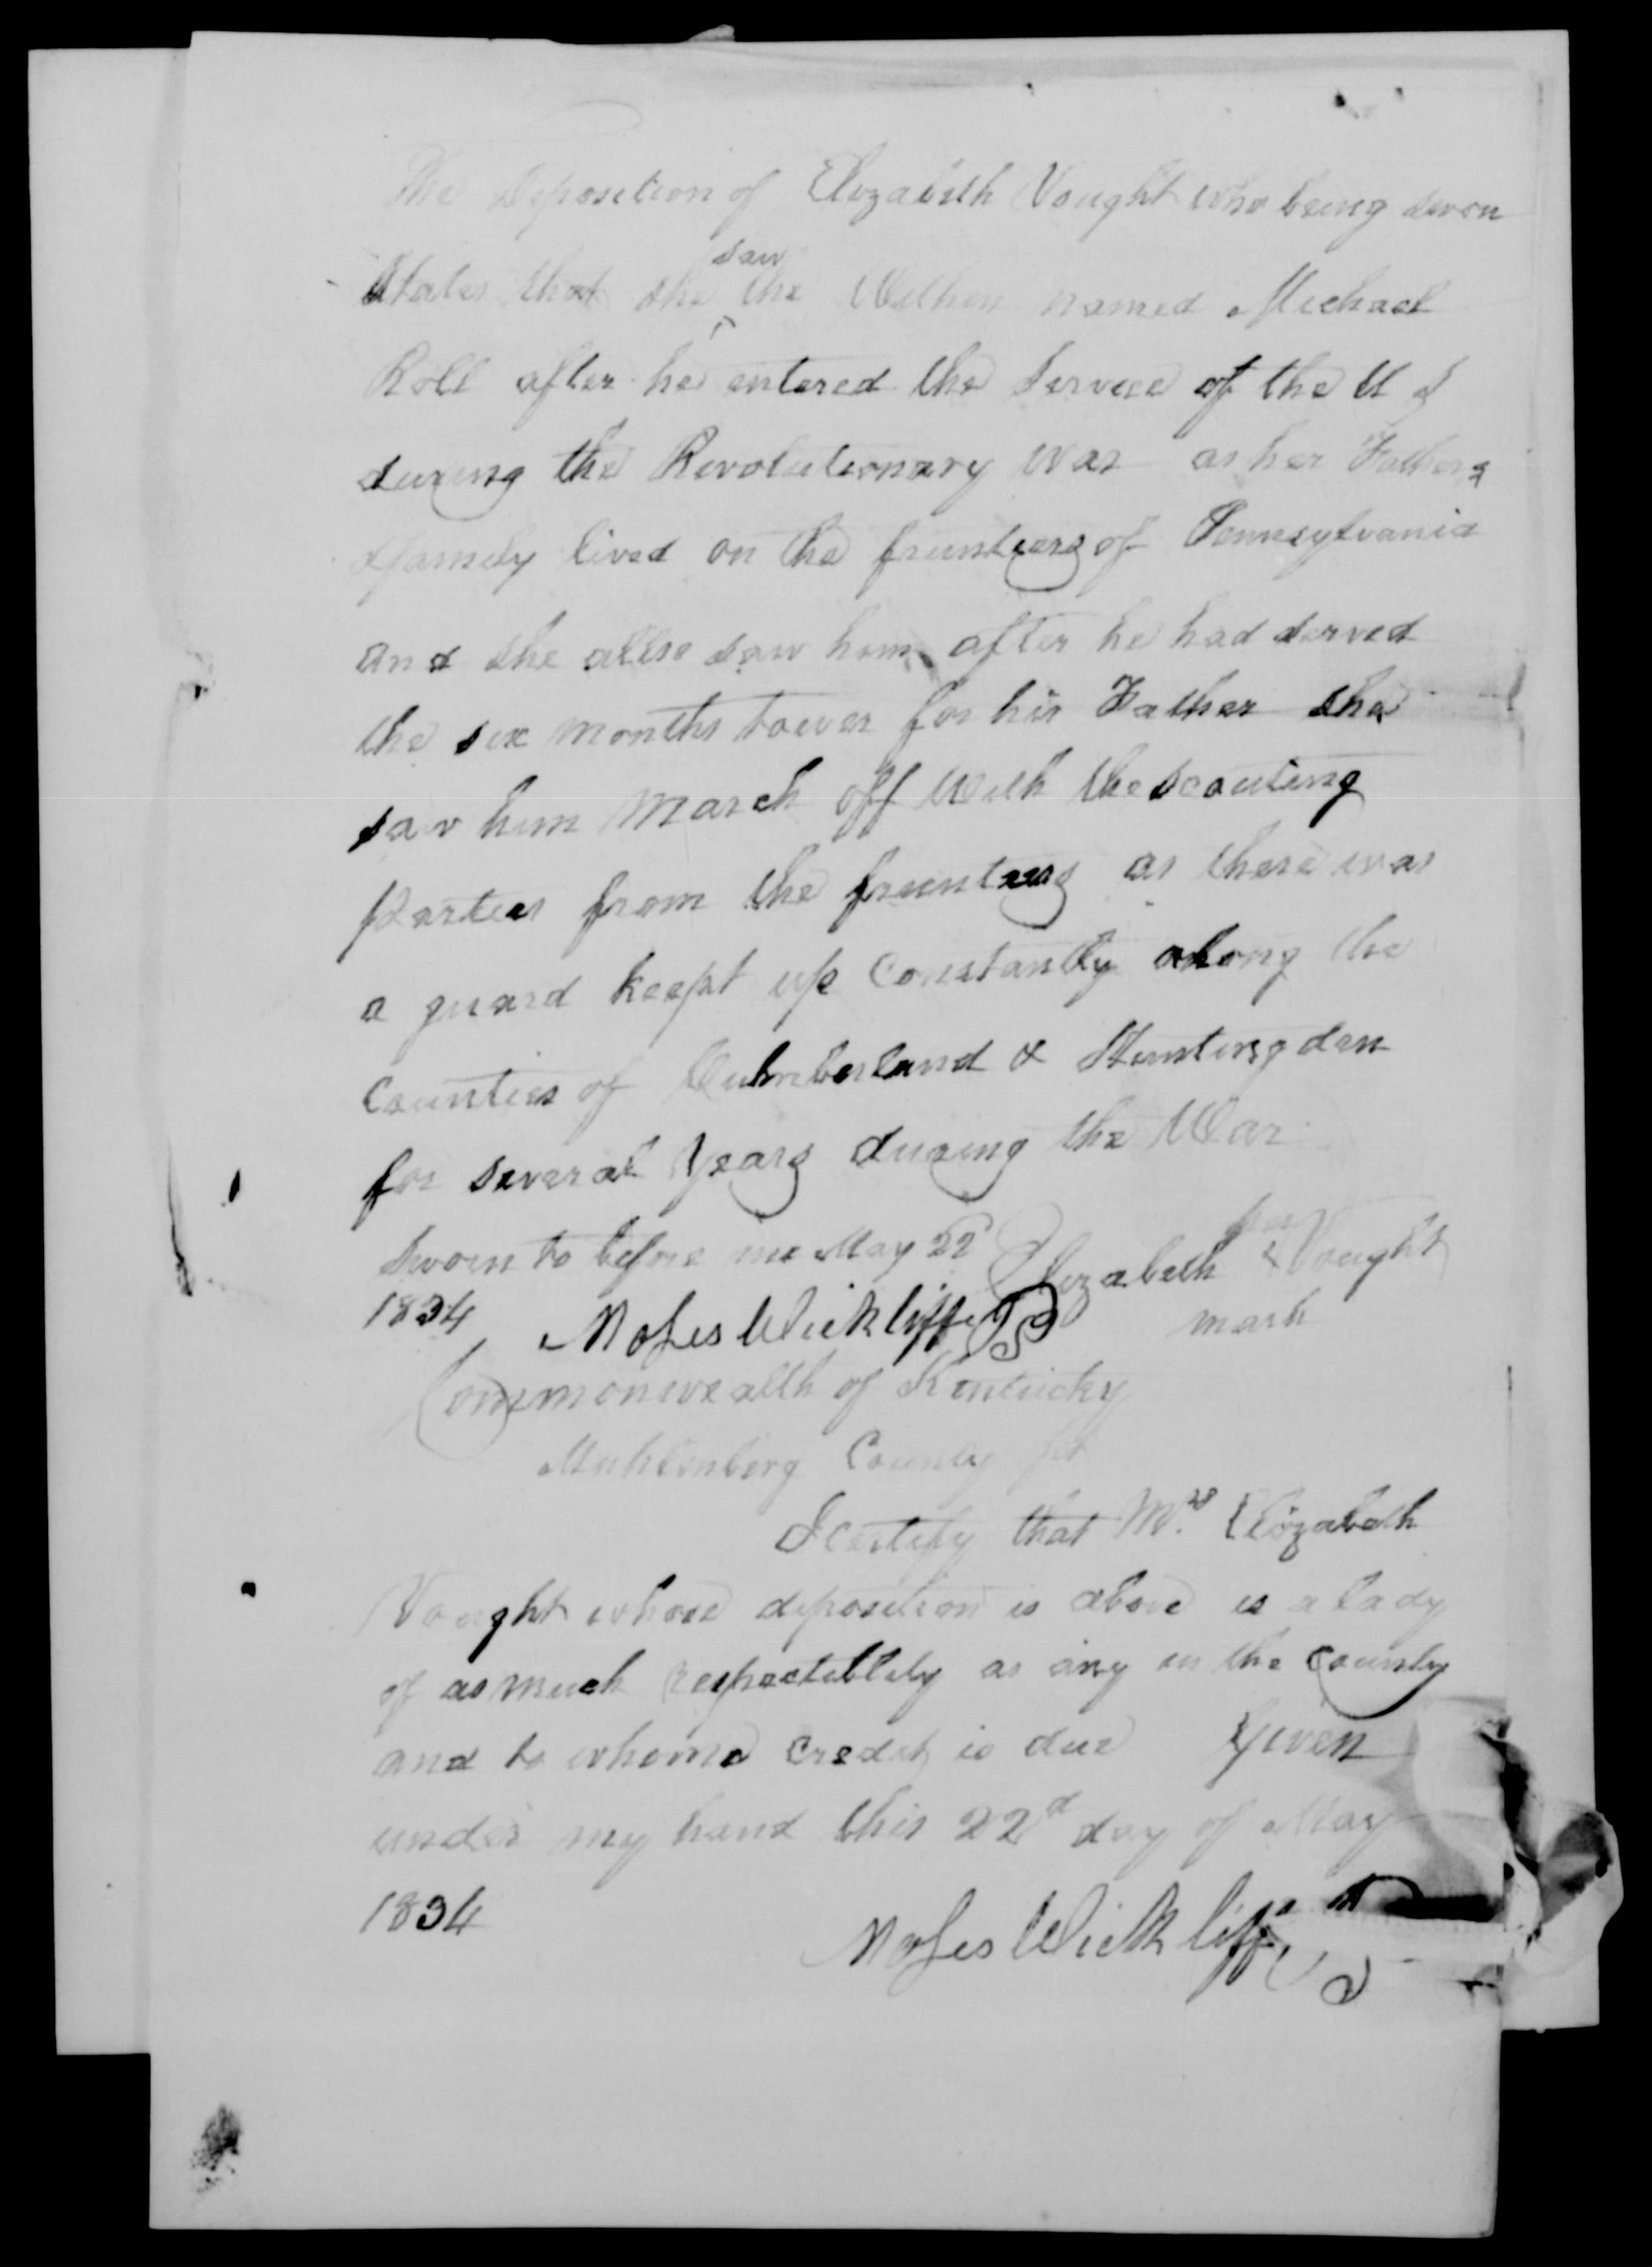 The deposition of Elizabeth Vought who being sworn
States that she saw the Within named Michael
Roll after he entered the Service of the U S
during the Revolutionary War as her Fathers
family lived on the frunteers of Pennsylvania
and she allso saw him after he had served
the six months tower for his Father she
saw him march off With the scouting
Parties from the frunteers as there was
a guard keept up Constantly along the
Counties of Cumberland & Huntingdon
for several Years during the War
Sworn to before me May 22d
1834 Moses Wickliffe JP
Elizabeth her x Vought
mark
Commonwealth of Kentucky
Muhlenberg County sct
I certify that Mrs Elizabeth
Vought whose deposition is above is a lady
of as much respectiblity as any in the County
and to whome credit is due Given
under my hand this 22d day of May
1834
Moses Wickliffe